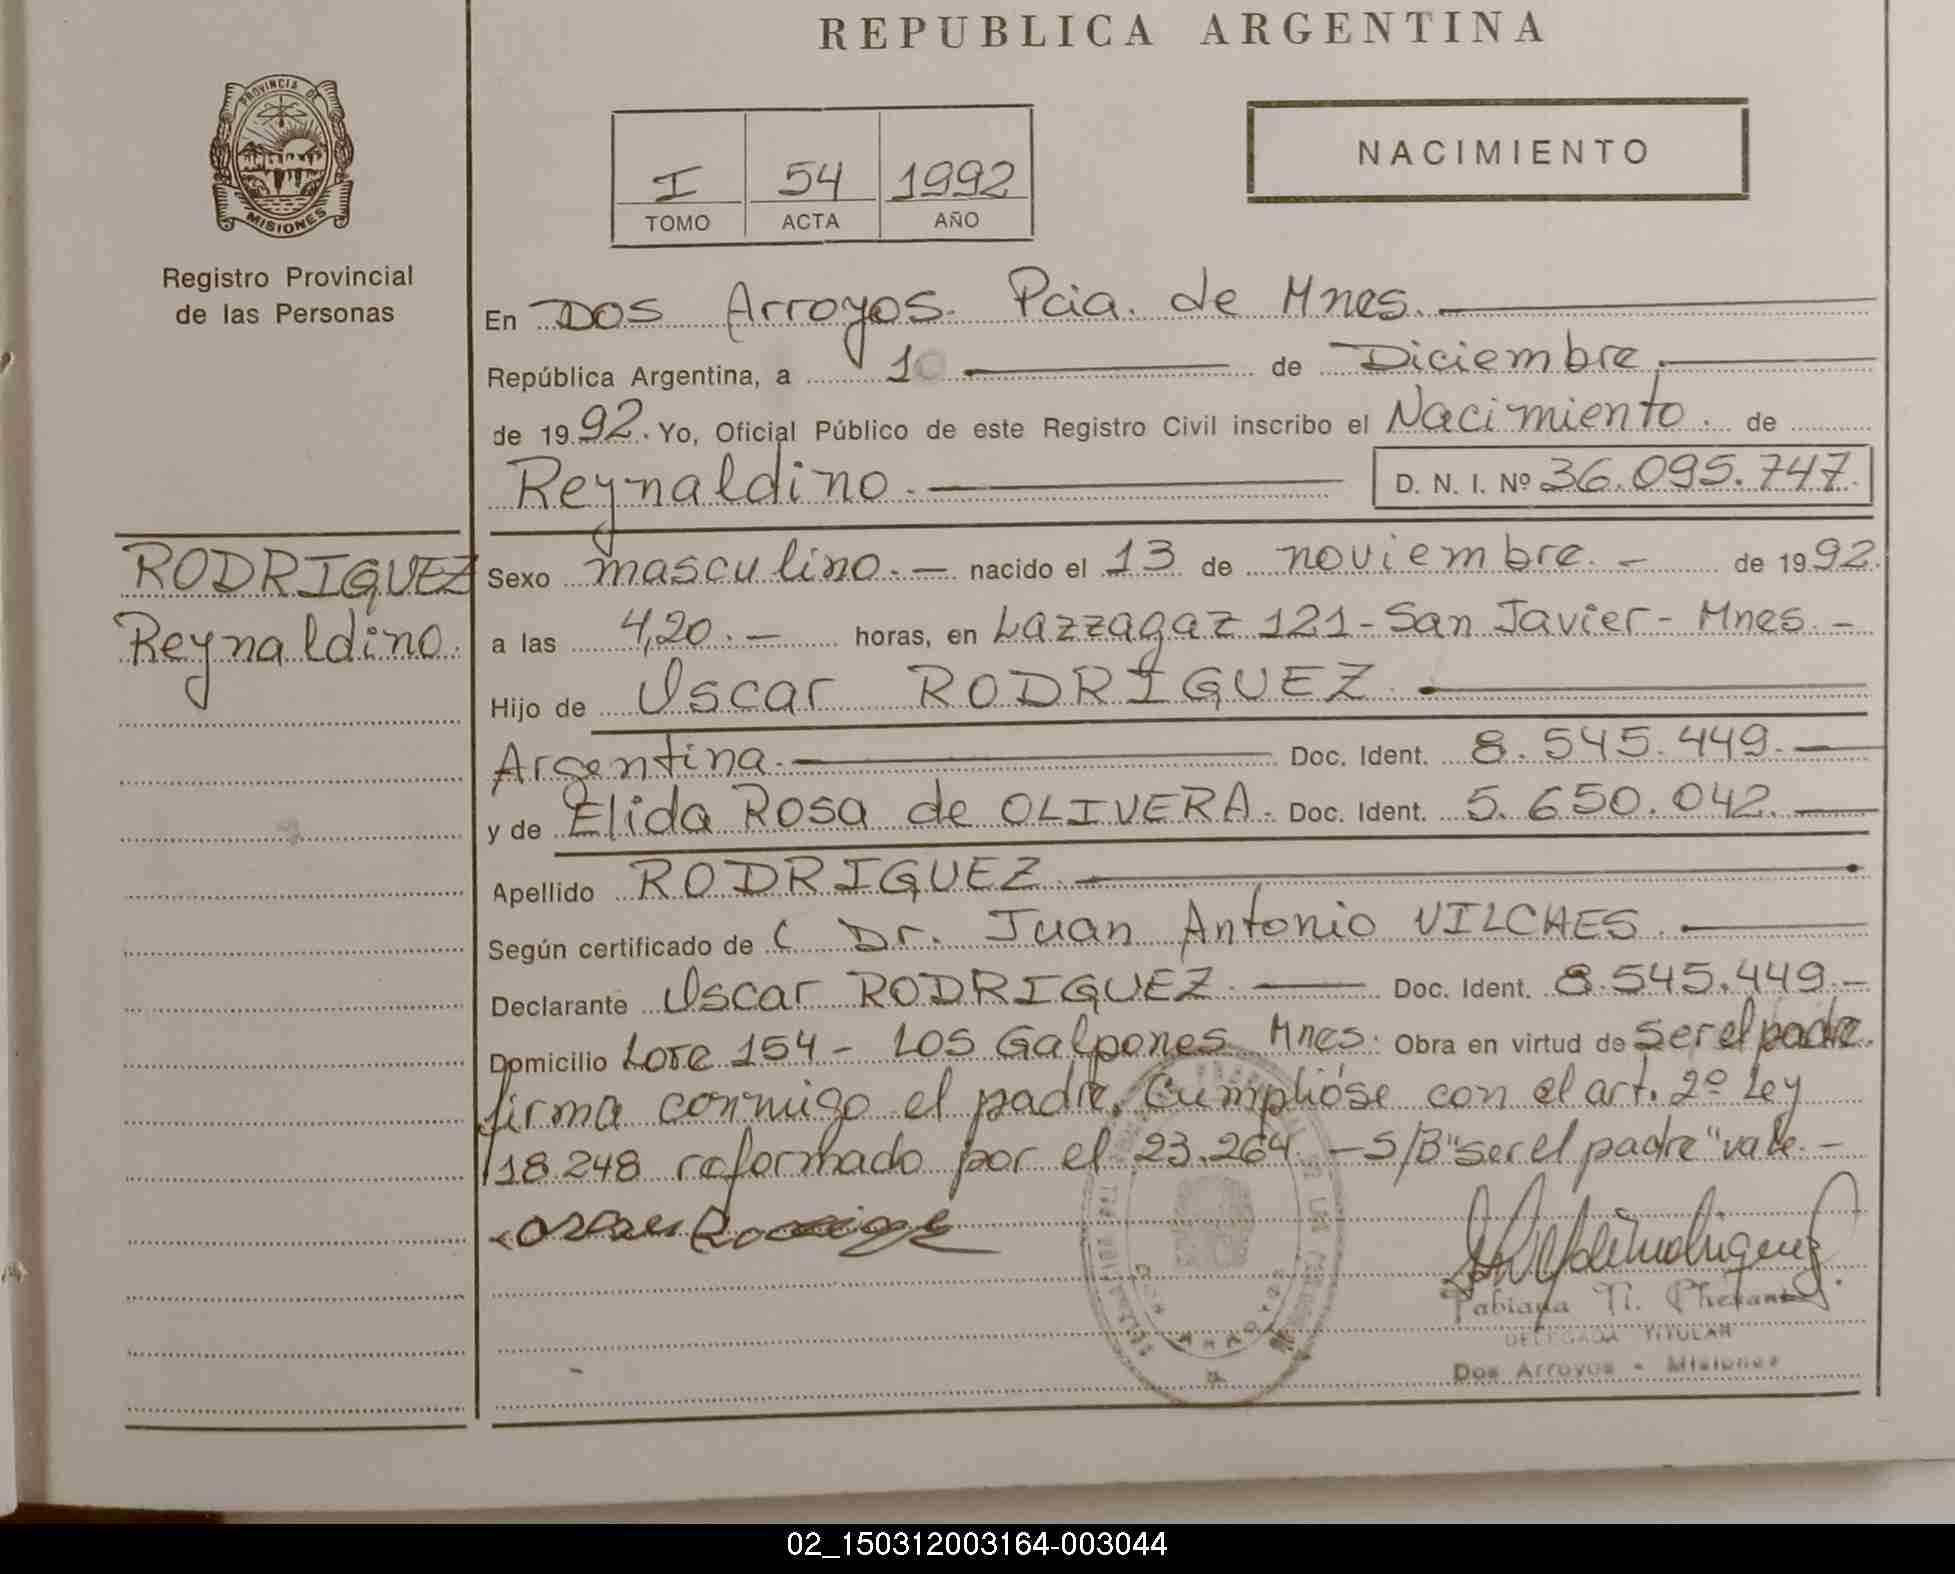 REPUBLICA ARGENTINA
PROVINCIA DE
MISIONES
Registro Provincial
de las Personas
I 54 1992
TOMO ACTA AÑO
NACIMIENTO
En Dos Arroyos. Pcia. de Mnes.
República Argentina, a 10 de Diciembre.
de 1992. Yo, Oficial Público de este Registro Civil inscribo el Nacimiento. de
Reynaldino. D. N. I. Nº 36.095.747.
RODRIGUEZ
Reynaldino.
Sexo masculino.- nacido el 13 de noviembre.- de 1992.
a las 4,20.- horas, en Lazzagaz 121-San Javier- Mnes.-
Hijo de Oscar RODRIGUEZ.
Argentina. Doc. Ident. 8.545.449.-
y de Elida Rosa de OLIVERA. Doc. Ident. 5.650.042.-
Apellido RODRIGUEZ
Según certificado de Dr. Juan Antonio VILCHES.
Declarante Oscar RODRIGUEZ. Doc. Ident. 8.545.449.-
Domicilio Lote 154 - Los Galpones. Mnes. Obra en virtud de ser el padre.
firma conmigo el padre. Cumplióse con el art. 2º Ley
18.248 reformado por el 23.264.-S/B"ser el padre"vale.-
DELEGADA TITULAR
Dos Arroyos - Misiones
02_150312003164-003044